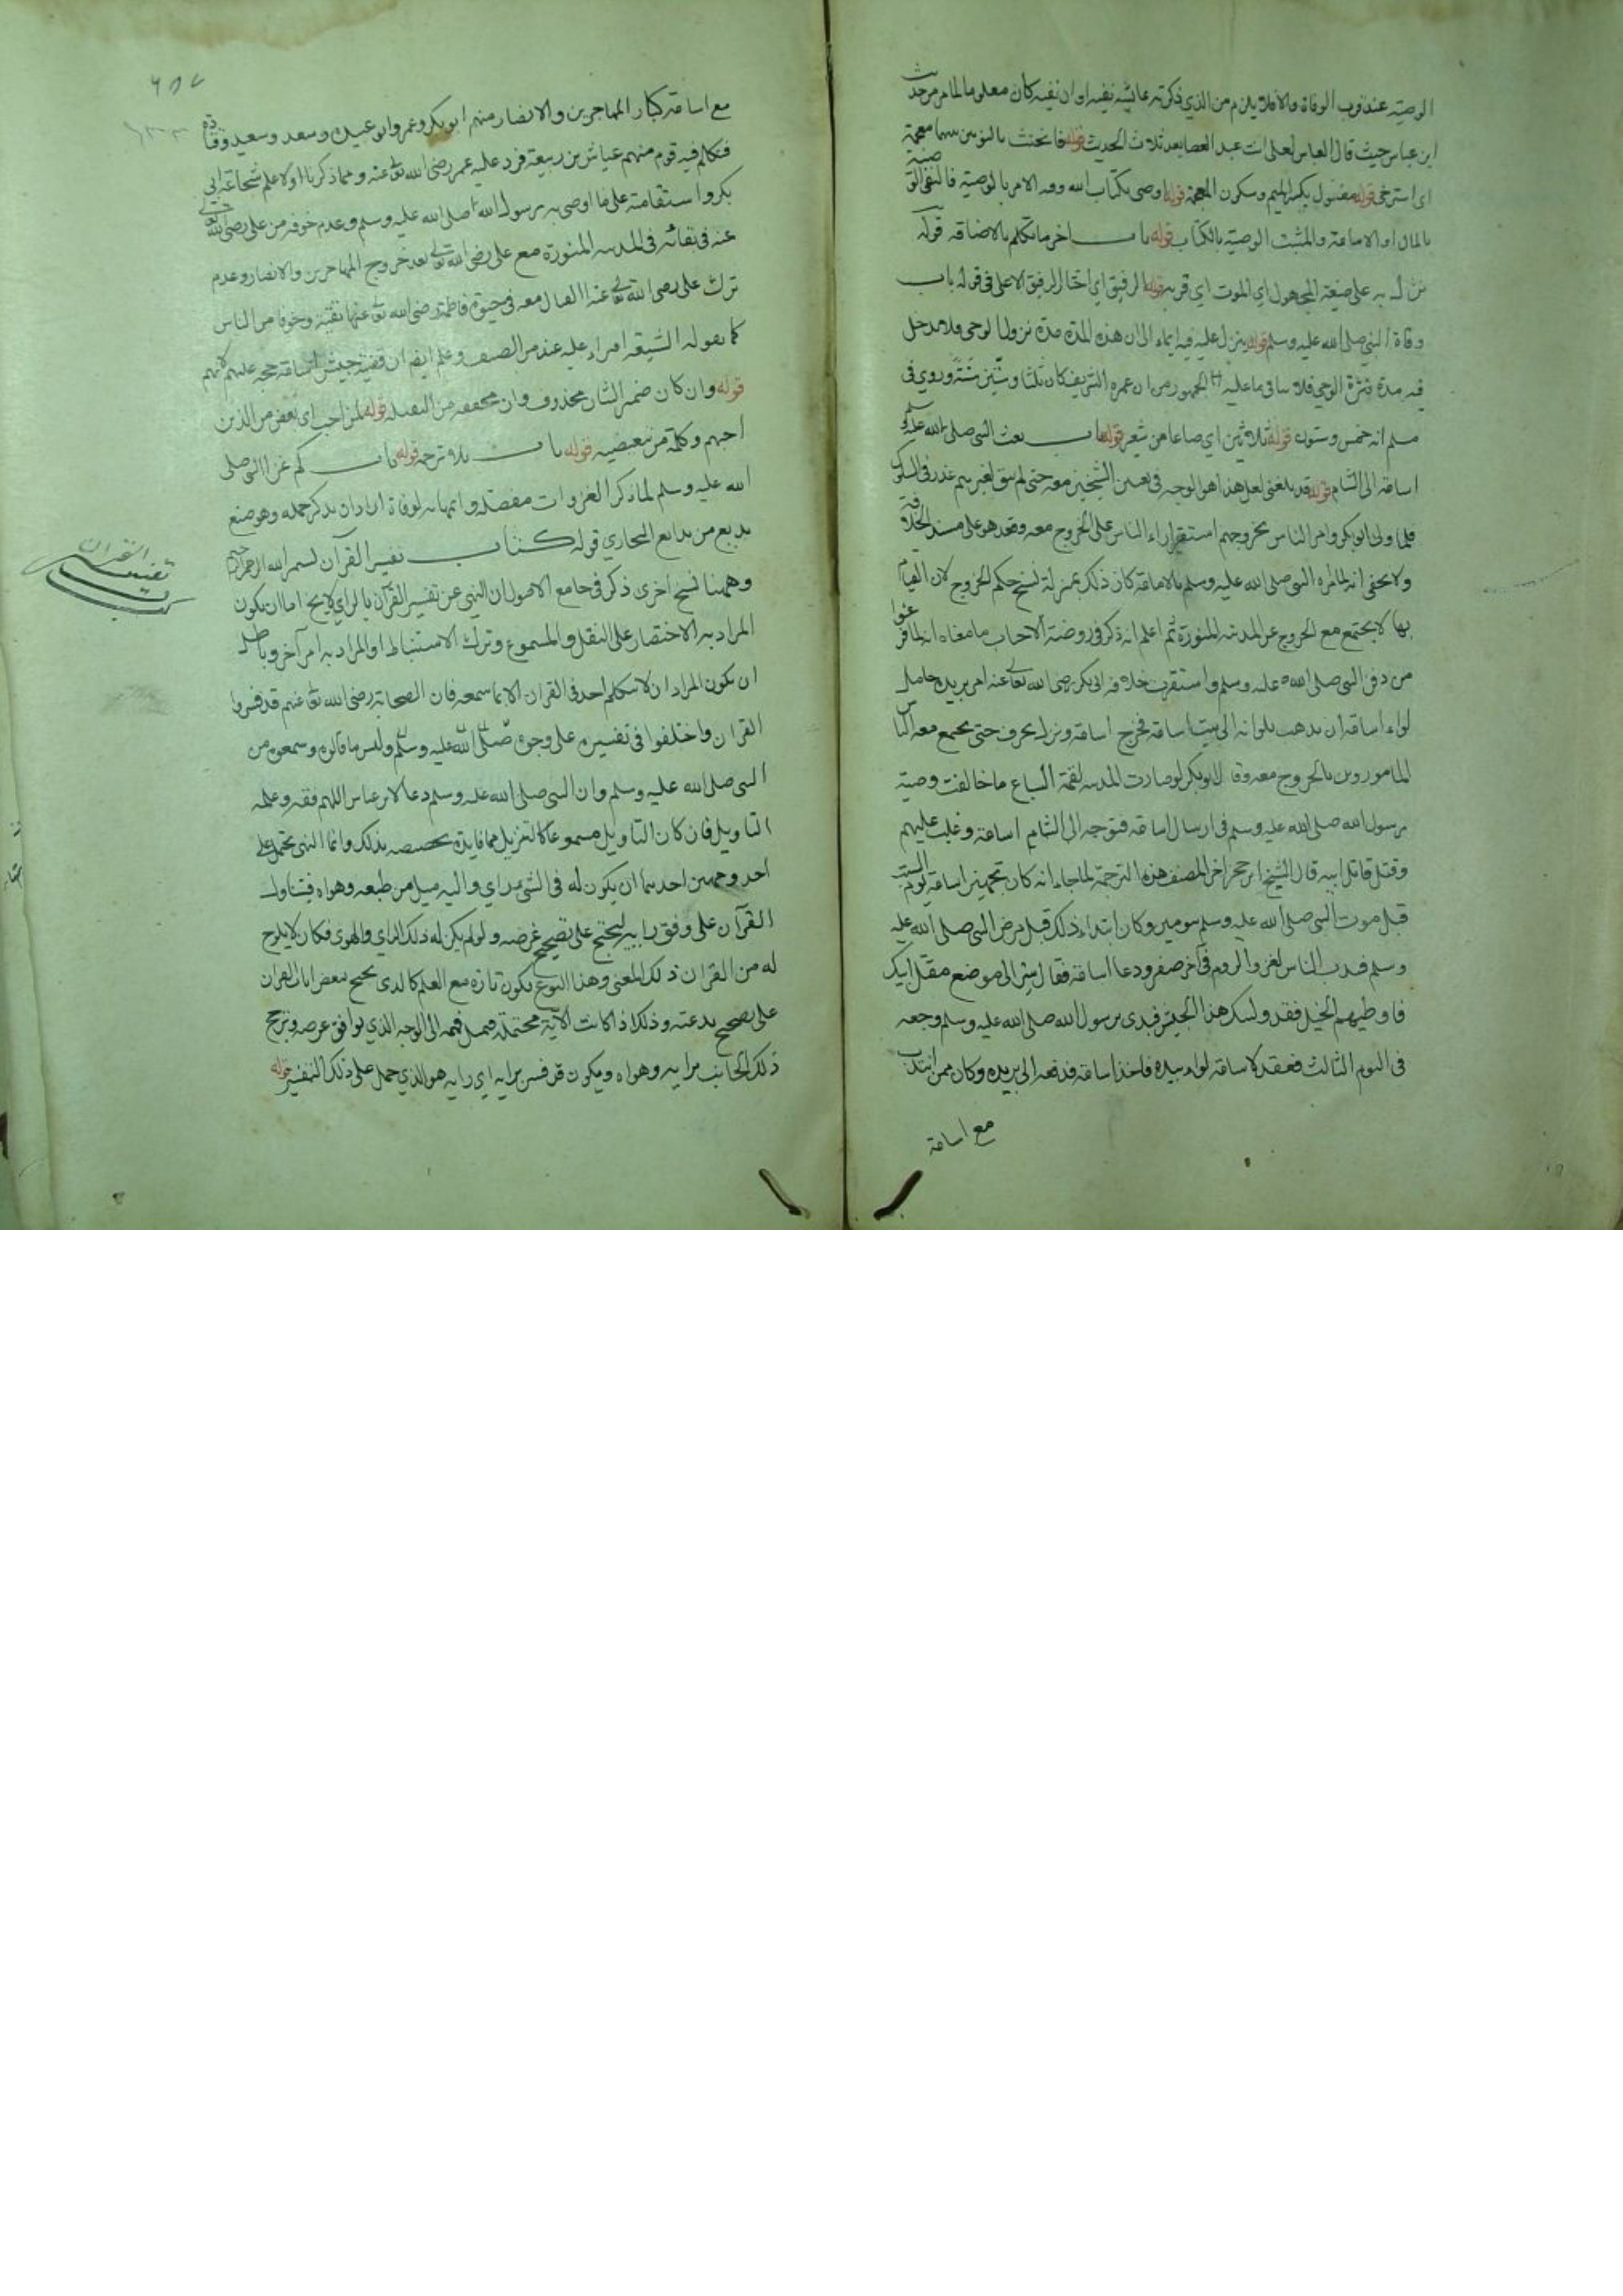 الوصية عند قرب الوفاة والا فلا يلزم من الذي ذكرته عائشة نفيه او ان نفيه كان معلوما لما مر من حديث
ابن عباس حيث قال العباس لعلي انت عبد العصا بعد ثلاث الحديث قوله فانخنث بالنونين بينهما معجمة
اي استرخى قوله بكسر الميم وسكون المعجمة قوله اوصى بكتاب الله وفيه الامر بالوصية فالنفي الوصية
بالمال او الامامة والمثبت الوصية بالكتاب قوله باب اخر ما تكلم بالاضافة قوله
نزل به على صيغة المجهول اي الموت اي قربه قوله الرفيق اي اختار الرفيق الاعلى في قوله باب
وفاة النبي صلى الله عليه وسلم قوله ينزل عليه فيه ايماء الى ان هذه المدة مدة نزول الوحي فلا مدخل
فيه مدة فترة الوحي فلا ينافي ما عليه الجمهور من ان عمره الشريف كان ثلثا وستين سنة وروي في
مسلم انه خمس وستون قوله ثلاثين اي صاعا من شعير قوله باب بعث النبي صلى الله عليه وسلم
اسامة الى الشام قوله قد بلغني لعل هذا هو الوجه في تعيين الشيخين معه حتى لم يبق لغيرهم عذر في السلوك
فلما ولي ابو بكر وامر الناس بخروجهم استقر اراء الناس على الخروج معه وقعد هو على مسند الخلافة
ولا يخفى انه لما امره النبي صلى الله عليه وسلم بالامامة كان ذلك بمنزلة نسخ حكم الخروج لان القيام
بها لا يجتمع مع الخروج عن المدينة المنورة ثم اعلم انه ذكر في روضة الاحباب ما معناه انه لما فرغوا
من دفن النبي صلى الله عليه وسلم واستقرت خلافة ابي بكر رضي الله تعالى عنه امر بريدة حامل
لواء اسامة ان يذهب بلوائه الى بيت اسامة فخرج اسامة ونزل بجرف حتى يجتمع معه الناس
المامورون بالخروج معه وقال ابو بكر لو صارت المدينة لقمة السباع ما خالفت وصية
رسول الله صلى الله عليه وسلم في ارسال اسامة فتوجه الى الشام اسامة وغلب عليهم
وقتل قاتل ابيه قال الشيخ ابن حجر اخر المصنف هذه الترجمة لما جاء انه كان تجهيز اسامة يوم السبت
قبل موت النبي صلى الله عليه وسلم بيومين وكان ابتداء ذلك قبل مرض النبي صلى الله عليه
وسلم فندب الناس لغزو الروم في آخر صفر ودعا اسامة فقال سر الى موضع مقتل ابيك
فاوطيهم الخيل فقد وليتك هذا الجيش فبدى برسول الله صلى الله عليه وسلم وجعه
في اليوم الثالث فعقد لاسامة لواء بيده فاخذ اسامة فدفعه الى بريدة وكان ممن انتدب
مع اسامة
٦٥٧
مع اسامة كبار المهاجرين والانصار منهم ابو بكر وعمر وابو عبيدة وسعد وسعيد وقتادة
فتكلم فيه قوم منهم عياش بن ربيعة فرد عليه عمر رضي الله تعالى عنه ومما ذكرنا اولا علم شجاعة ابي
بكر واستقامته على ما اوصى به رسول الله صلى الله عليه وسلم وعدم خوفه من علي رضي الله تعالى
عنه في بقائه في المدينة المنورة مع علي رضي الله تعالى بعد خروج المهاجرين والانصار وعدم
ترك علي رضي الله تعالى عنه القتال معه في حيوة فاطمة رضي الله تعالى عنها تقية وخوفا من الناس
كما يقوله الشيعة افتراء عليه وعلم ايضا ان قضية جيش اسامة حجة عليهم لا لهم
قوله وان كان ضمير الشان محذوف وان مخففة من المثقلة قوله لمن احب اي بعض من الذين
احبهم وكلمة من تبعيضية قوله باب بلا ترجمة قوله باب كم غزا النبي صلى
الله عليه وسلم لما ذكر الغزوات مفصلة واتمها بالوفاة اراد ان يذكر جملة وهو صنع
بديع من بدايع البخاري قوله كتاب تفسير القرآن بسم الله الرحمن الرحيم
كتاب تفسير القران
وههنا نسخ اخرى ذكر في جامع الاصول ان النهي عن تفسير القرآن بالراي لا يخ اما ان يكون
المراد به الاختصار على النقل والمسموع وترك الاستنباط او المراد به امر آخر وباطل
ان يكون المراد ان لا يتكلم احد في القران الا بما سمعه فان الصحابة رضي الله تعالى عنهم قد فسروا
القران واختلفوا في تفسيره على وجوه صلى الله عليه وسلم وليس ما قالوه وسمعوه من
النبي صلى الله عليه وسلم وان النبي صلى الله عليه وسلم دعا لابن عباس اللهم فقهه وعلمه
التاويل فان كان التاويل مسموعا كالتنزيل فما فايدة تخصيصه بذلك وانما النهي يحتمل على
احد وجهين احدهما ان يكون له في الشي راي واليه ميل من طبعه وهواه فيتناول
القرآن على وفق رايه ليحتج على تصحيح غرضه ولو لم يكن له ذلك الراي والهوى فكان لا يلوح
له من القران ذلك المعنى وهذا النوع يكون تارة مع العلم كالذي يحتج ببعض ايات القران
على تصحيح بدعته وذلك اذا كانت الآية محتملة فيميل فهمه الى الوجه الذي يوافق غرضه ويرجح
ذلك الجانب برايه وهواه ويكون قد فسر برايه اي رايه هو الذي حمل على ذلك التفسير قوله